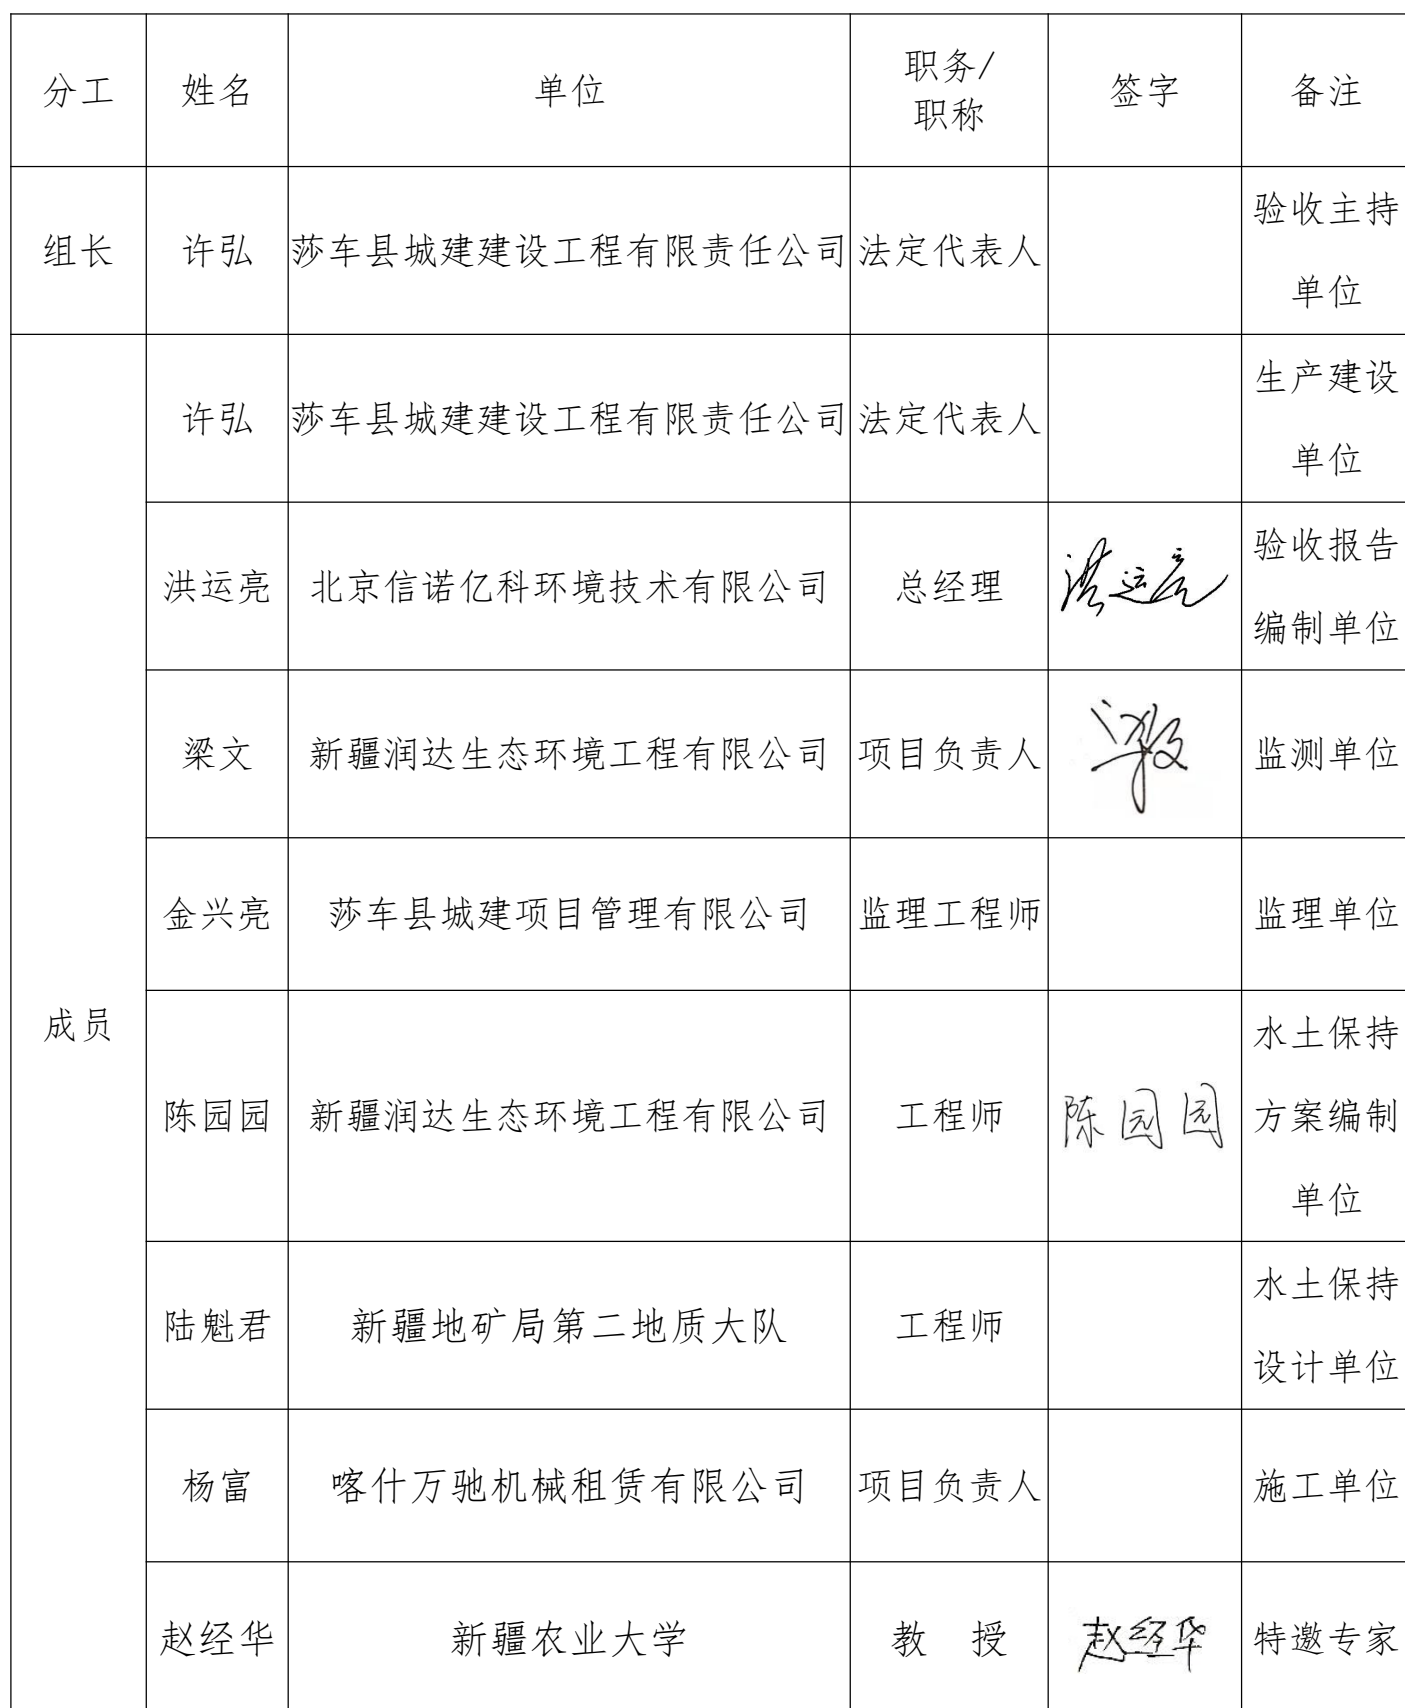 分工 姓名 单位 职务/ 签字 备注
职称
组长 许弘 莎车县城建建设工程有限责任公司 法定代表人 验收主持
单位
成员 许弘 莎车县城建建设工程有限责任公司 法定代表人 生产建设
单位
洪运亮 北京信诺亿科环境技术有限公司 总经理 洪运亮 验收报告
编制单位
梁文 新疆润达生态环境工程有限公司 项目负责人 监测单位
金兴亮 莎车县城建项目管理有限公司 监理工程师 监理单位
陈园园 新疆润达生态环境工程有限公司 工程师 陈园园 水土保持
方案编制
单位
陆魁君 新疆地矿局第二地质大队 工程师 水土保持
设计单位
杨富 喀什万驰机械租赁有限公司 项目负责人 施工单位
赵经华 新疆农业大学 教 授 赵经华 特邀专家